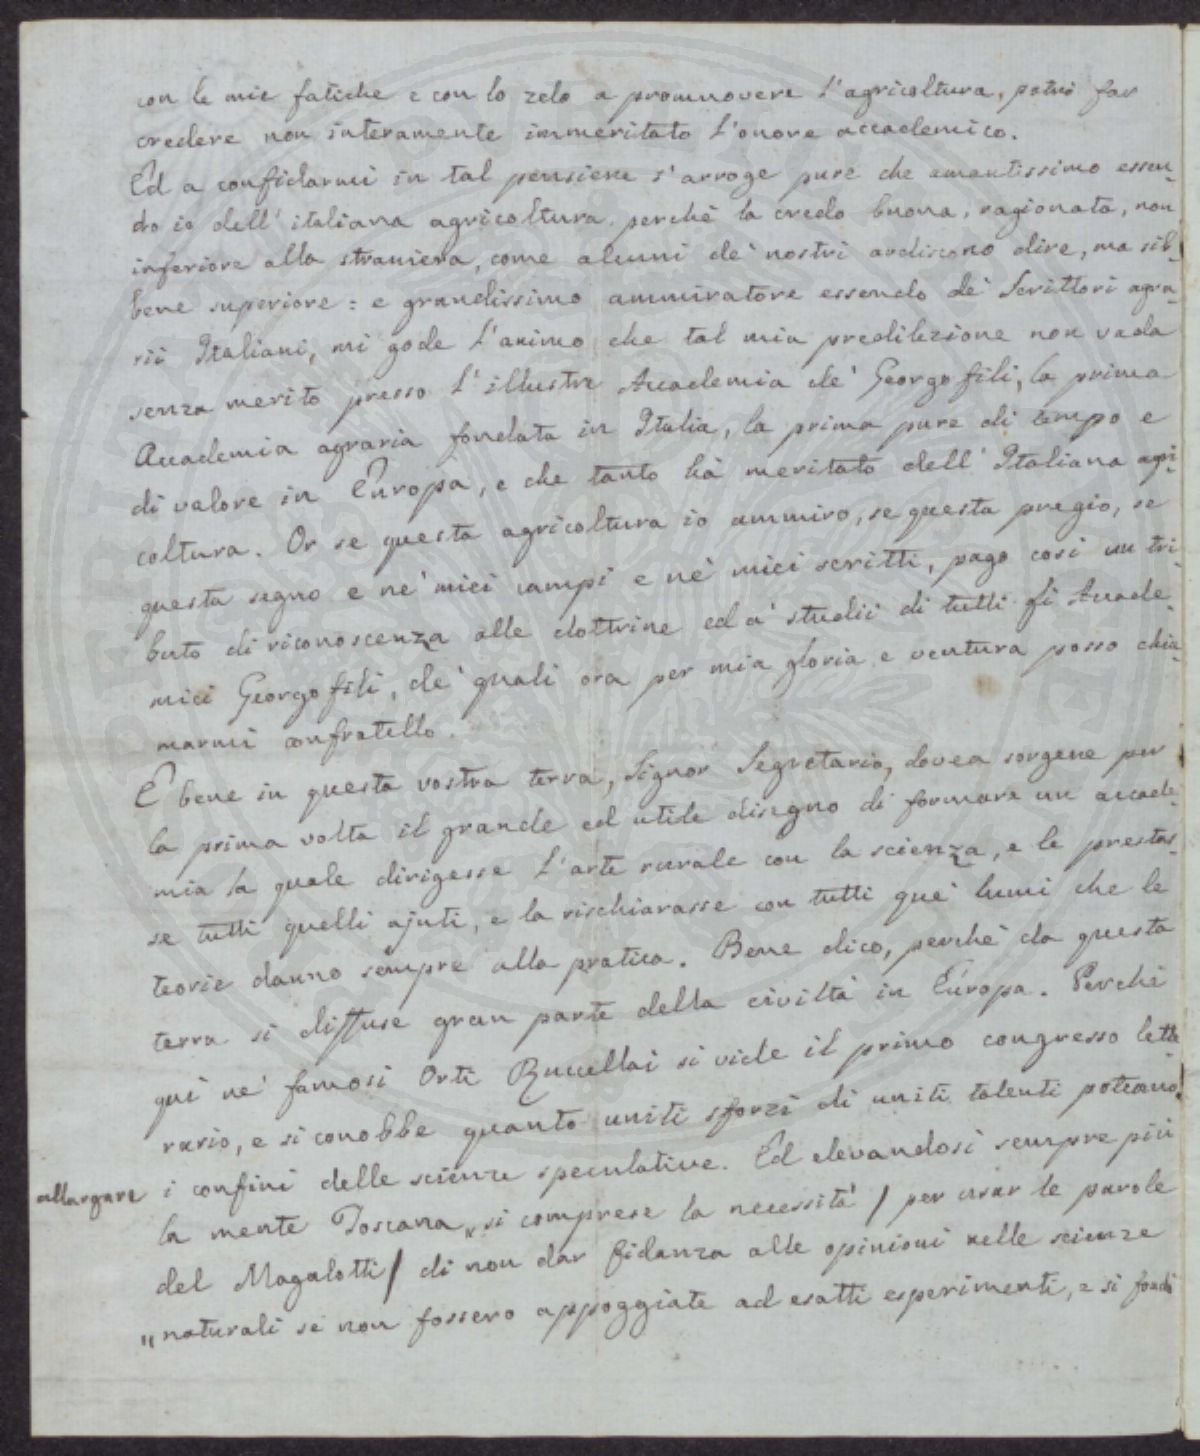 con le mie fatiche e con lo zelo a promuovere l'agricoltura, potrò far
credere non interamente immeritato l'onore accademico.
Ed a confidarmi in tal pensiere s'arroge pure che amantissimo essen-
do io dell'italiana agricoltura perchè la credo buona, ragionata, non
inferiore alla straniera, come alcuni de' nostri ardiscono dire, ma sib-
bene superiore: e grandissimo ammiratore essendo de' Scrittori agra-
rii Italiani, mi gode l'animo che tal mia predilezione non vada
senza merito presso l'illustre Accademia de' Georgofili, la prima
Accademia agraria fondata in Italia, la prima pure di tempo e
di valore in Europa, e che tanto hà meritato dell'Italiana agri-
coltura. Or se questa agricoltura io ammiro, se questa pregio, se
questa segno e ne' miei campi e ne' miei scritti, pago così un tri-
buto di riconoscenza alle dottrine ed a' studii di tutti gli Accade-
mici Georgofili, de' quali ora per mia gloria e ventura posso chia-
marmi confratello.
E bene in questa vostra terra, Signor Segretario, dovea sorgene per
la prima volta il grande ed utile disegno di formare un accade-
mia la quale dirigesse l'arte rurale con la scienza, e le prestas-
se tutti quelli ajuti, e la rischiarasse con tutti que' lumi che le
teorie danno sempre alla pratica. Bene dico, perchè da questa
terra si diffuse gran parte della civiltà in Europa. Perchè
qui ne' famosi Orti Rucellai si vide il primo congresso lette-
rario, e si conobbe quanto uniti sforzi di uniti talenti poteano
allargare i confini delle scienze speculative. Ed elevandosi sempre più
la mente Toscana, si comprese la necessità / per usar le parole
del Magalotti / di non dar fidanza alle opinioni nelle scienze
„naturali se non fossero appoggiate ad esatti esperimenti, e si fondò